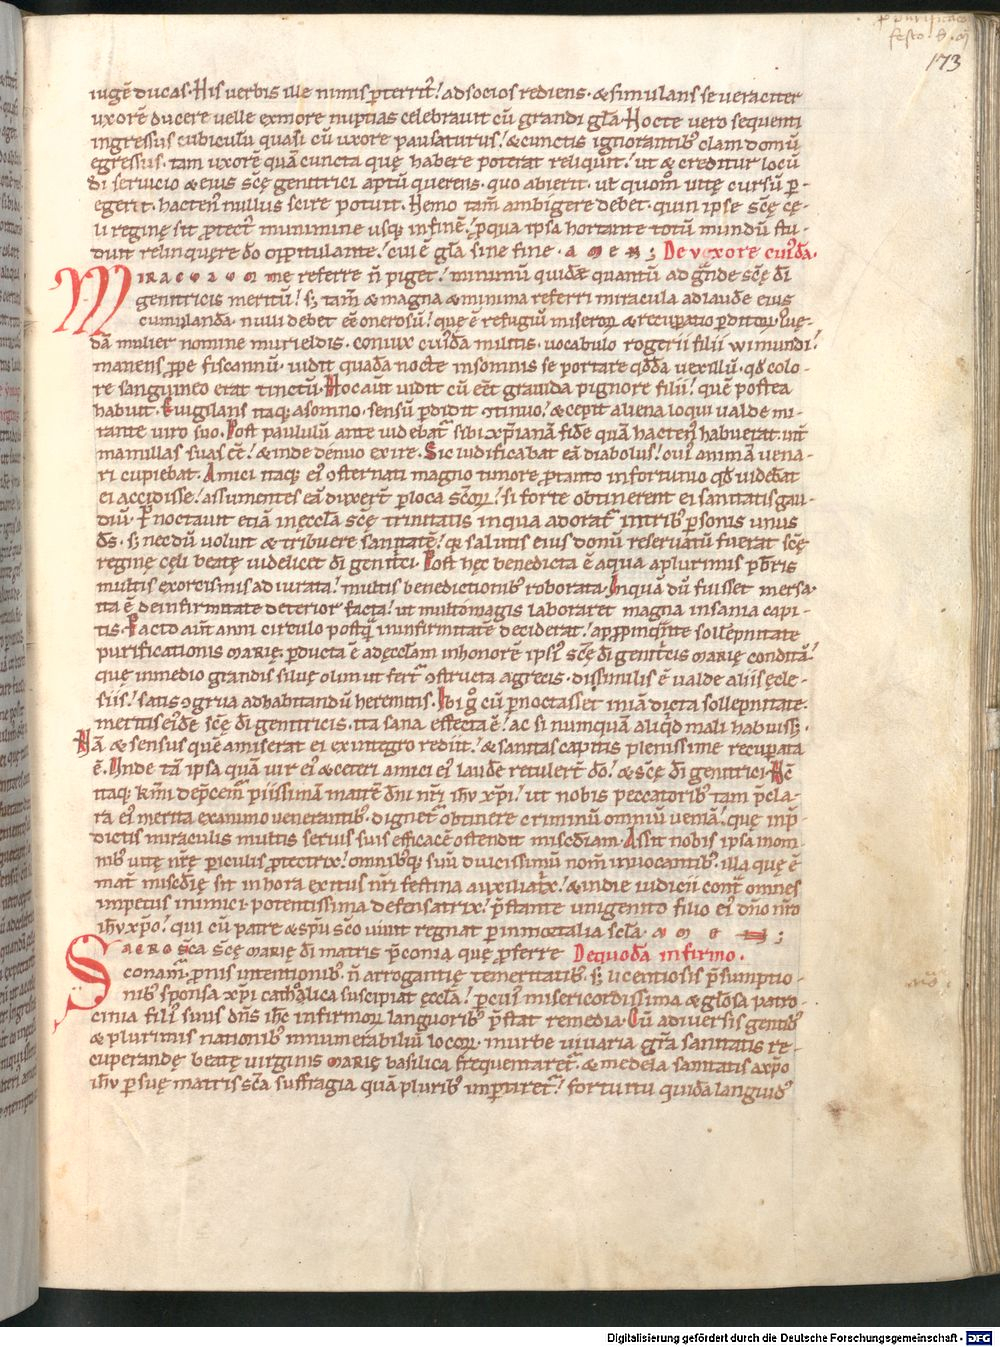 festo
173
iugē ducas. His verbis ille nimis ꝑterrit᷒! ad socios rediens. & simulans se veraciter
uxorē ducere uelle ex more nuptias celebrauit cū grandi gl̄a. Nocte uero sequenti
ingressus cubiculū quasi cū uxore pausaturus! & cunctis ignorantib᷒ clam domū
egressus. tam uxorē quā cuncta quę habere poterat reliquit! ut & creditur locū
dī seruicio & eius sc̄ę genitrici aptū querens. quo abierit. ut quom̄ uitę cursū ꝑ-
egerit. hacten᷒ nullus scire potuit. Nemo tam̄ ambigere debet. quin ipse sc̄ę cę-
li reginę sit ꝓtect᷒ munimine usq; in finē! ꝓ qua ipsa hortante totū mundū stu-
duit relinquere dō opitulante! cui ē gl̄a sine fine. AMEN; De uxore cui᷒dā.
MIRACULUM me referre n̄ piget! minimū quidē quantū ad grande sc̄ę dī
genitricis meritū! s; tam̄ & magna & minima referri miracula ad laudē eius
cumulandā. nulli debet eē onerosū! quę ē refugiū miseroꝝ & recuꝑatio ꝑditoꝝ. Quę-
dā mulier nomine murieldis. coniux cui᷒dā militis. uocabulo rogerii filii wimundi!
manens ꝓpe fiscannū. uidit quadā nocte in somnis se portare qddā uexillū. qd colo-
re sanguineo erat tinctū. Hoc aut̄ uidit cū eēt grauida pignore filii! quē postea
habuit. Euigilans itaq; a somno. sensū ꝑdidit ꝯtinuo! & cepit aliena loqui ualde mi-
rante uiro suo. Post paululū ante uidebat᷒ sibi xp̄ianā fidē quā hacten᷒ habuerat. int̄
mamillas suas eē! & inde denuo exire. Sic ludificabat eā diabolus! cui᷒ animā uena-
ri cupiebat. Amici itaq; ei᷒ ꝯsternati magno timore ꝓ tanto infortunio qd uidebat
ei accidisse! assumentes eā duxer̄t ꝑ loca sc̄oꝝ! si forte obtinerent ei sanitatis gau-
diū. Pernoctauit etiā in ęccl̄a sc̄ę trinitatis in qua adorat᷒ in trib᷒ ꝑsonis unus
d̄s. s; necdū uoluit ei tribuere sanitatē! q; salutis eius donū reseruatū fuerat sc̄ę
reginę cęli beatę uidelicet dī genitrici. Post hęc benedicta ē aqua a plurimis p̄bris
multis exorcismis adiurata! multis benedictionib᷒ roborata. In quā dū fuisset mersa.
ita ē de infirmitate deterior facta! ut multo magis laboraret magna insania capi-
tis. Facto aut̄ anni circulo postq̄ in infirmitatē deciderat! appropinquante sollepnitate
purificationis MARIĘ. ꝑducta ē ad ęccl̄am in honorē ipsi᷒ sc̄ę dī genitricis MARIĘ conditā.
quę in medio grandis siluę olim ut fert᷒ ꝯstructa a grecis. dissimilis ē ualde aliis ęcle-
siis! satis ꝯgrua ad habitandū heremitis. Ibi g̊ cū ꝑnoctasset in iā dicta sollepnitate.
meritis ei᷒dē sc̄ę dī genitricis. ita sana effecta ē! ac si nunquā aliqd mali habuiss;.
Nā & sensus quē amiserat ei ex integro rediit! & sanitas capitis plenissime recuꝑata
ē. Unde tā ipsa quā uir ei᷒ & ceteri amici ei᷒ laudē retuler̄t dō! & sc̄ę dī genitrici. Hāc
itaq; km̄i dep̄cem᷒ piissimā matrē dn̄i nr̄i ih̄u xp̄i! ut nobis peccatorib᷒ tam p̄cla-
ra ei᷒ merita ex animo uenerantib᷒. dignet᷒ obtinere criminū omniū ueniā! quę in p̄-
dictis miraculis multis seruis suis efficacē ostendit mis̄cdiam. Assit nobis ipsa in om-
nib᷒ uitę nr̄ę ꝑiculis ꝓtectrix! omnib᷒q; suū dulcissimū nom̄ inuocantib᷒. illa quę ē
mat᷒ mis̄cdię sit in hora exitus nr̄i festina auxiliatrix! & in die iudicii contra omnes
impetus inimici. potentissima defensatrix! p̄stante unigenito filio ei᷒ dn̄o nr̄o
ih̄u xp̄o! qui cū patre & sp̄u sc̄o uiuit regnat ꝑ inmortalia sc̄la. AMEN;
SAEROSC̄A sc̄ę MARIĘ dī matris p̄conia quę ꝓferre De quodā infirmo.
conam᷒. ꝓnis intentionib᷒. n̄ arrogantię temeritatib᷒. s; licentiosis p̄sumptio-
nib᷒ sponsa xp̄i catholica suscipiat ęccl̄a! ꝑ cui᷒ misericordissima & gl̄osa patro-
cinia fili᷒ suus dn̄s ih̄c infirmoꝝ languorib᷒ p̄stat remedia. Cū a diuersis gentib᷒
& plurimis nationib᷒ innumerabiliū locoꝝ. in urbe uiuaria gr̄a sanitatis re-
cuperandę beatę uirginis MARIĘ basilica frequentaret᷒. & medela sanitatis a xp̄o
ih̄u ꝑ suę matris sc̄a suffragia quā plurib᷒ imꝑtiret᷒! fortuitu quidā languid᷒
Digitalisierung gefördert durch die Deutsche Forschungsgemeinschaft - DFG